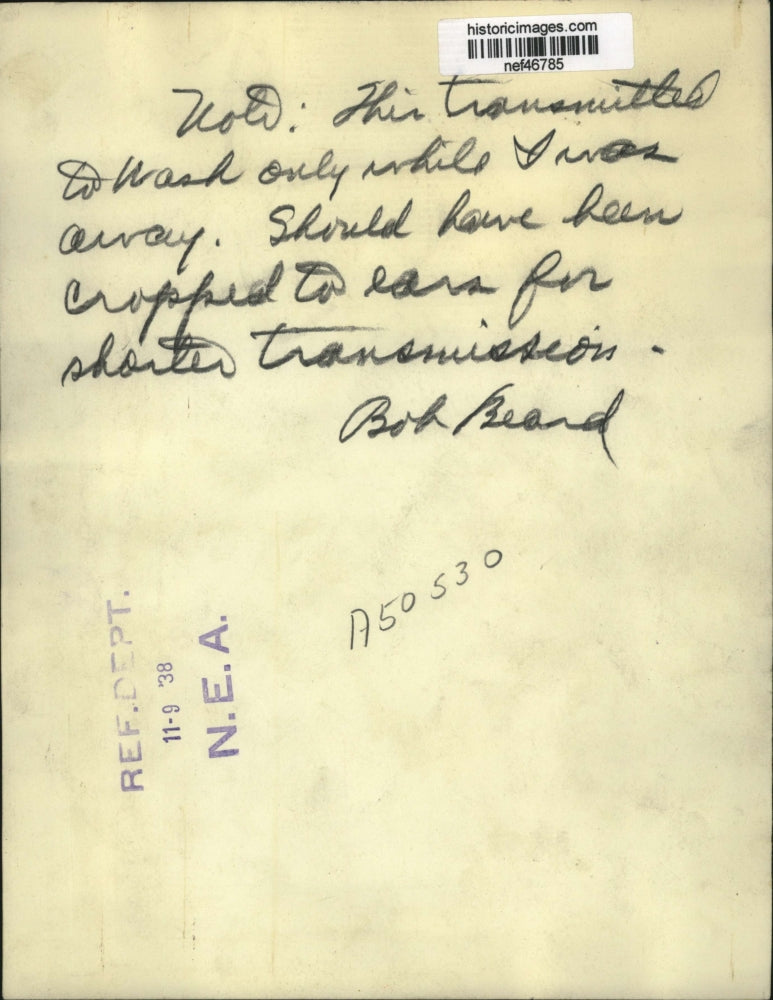 historicimages.com
nef46785
Note: This transmitted
to Wash only while I was
away. Should have been
cropped to ears for
shorter transmission.
Bob Beard
A50530
REF. DEPT.
11-9 '38
N.E.A.